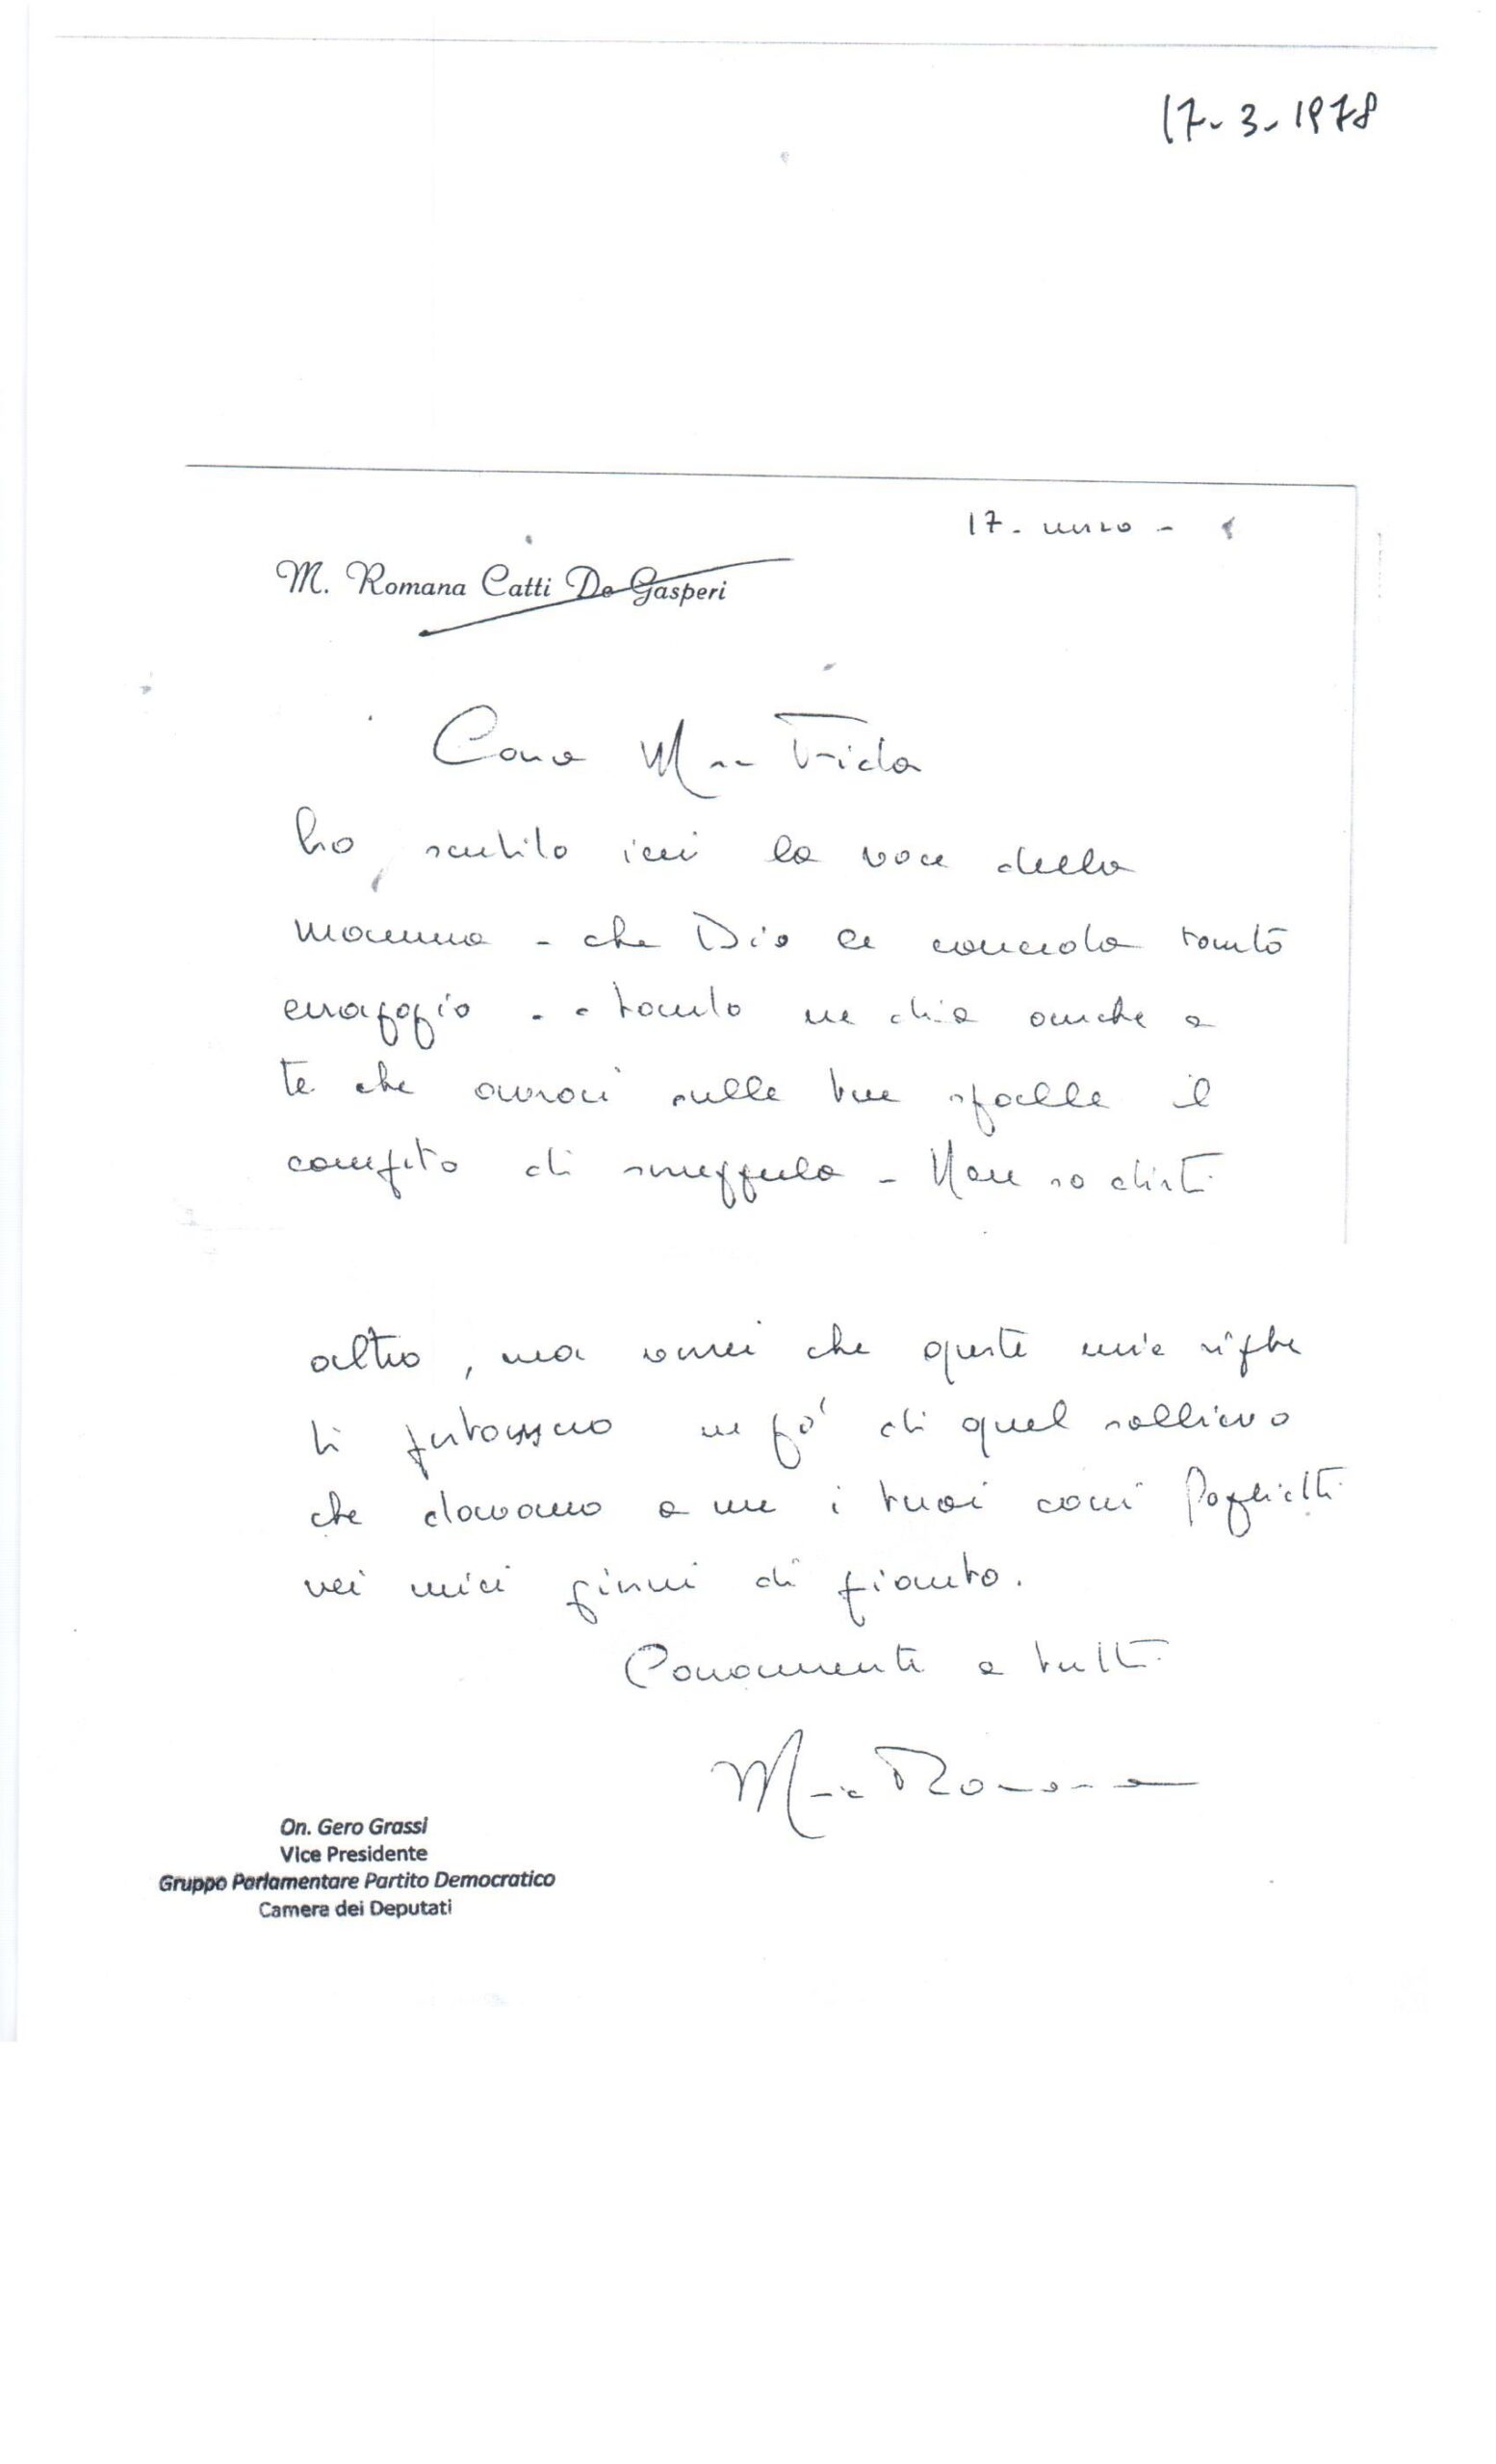 17-3-1978
17 - marzo -
M. Romana Catti De Gasperi
Cara M Frida
ho sentito ieri la voce della
mamma - che Dio le conceda tanto
coraggio - e tanto ne dia anche a
te che avrai sulle tue spalle il
compito di sorreggerla - Non so dirti
altro, ma vorrei che queste mie righe
ti portassero un po' di quel sollievo
che davano a me i tuoi cari foglietti
nei miei giorni di pianto.
Caramente a tutti
M Romana
On. Gero Grassi
Vice Presidente
Gruppo Parlamentare Partito Democratico
Camera dei Deputati